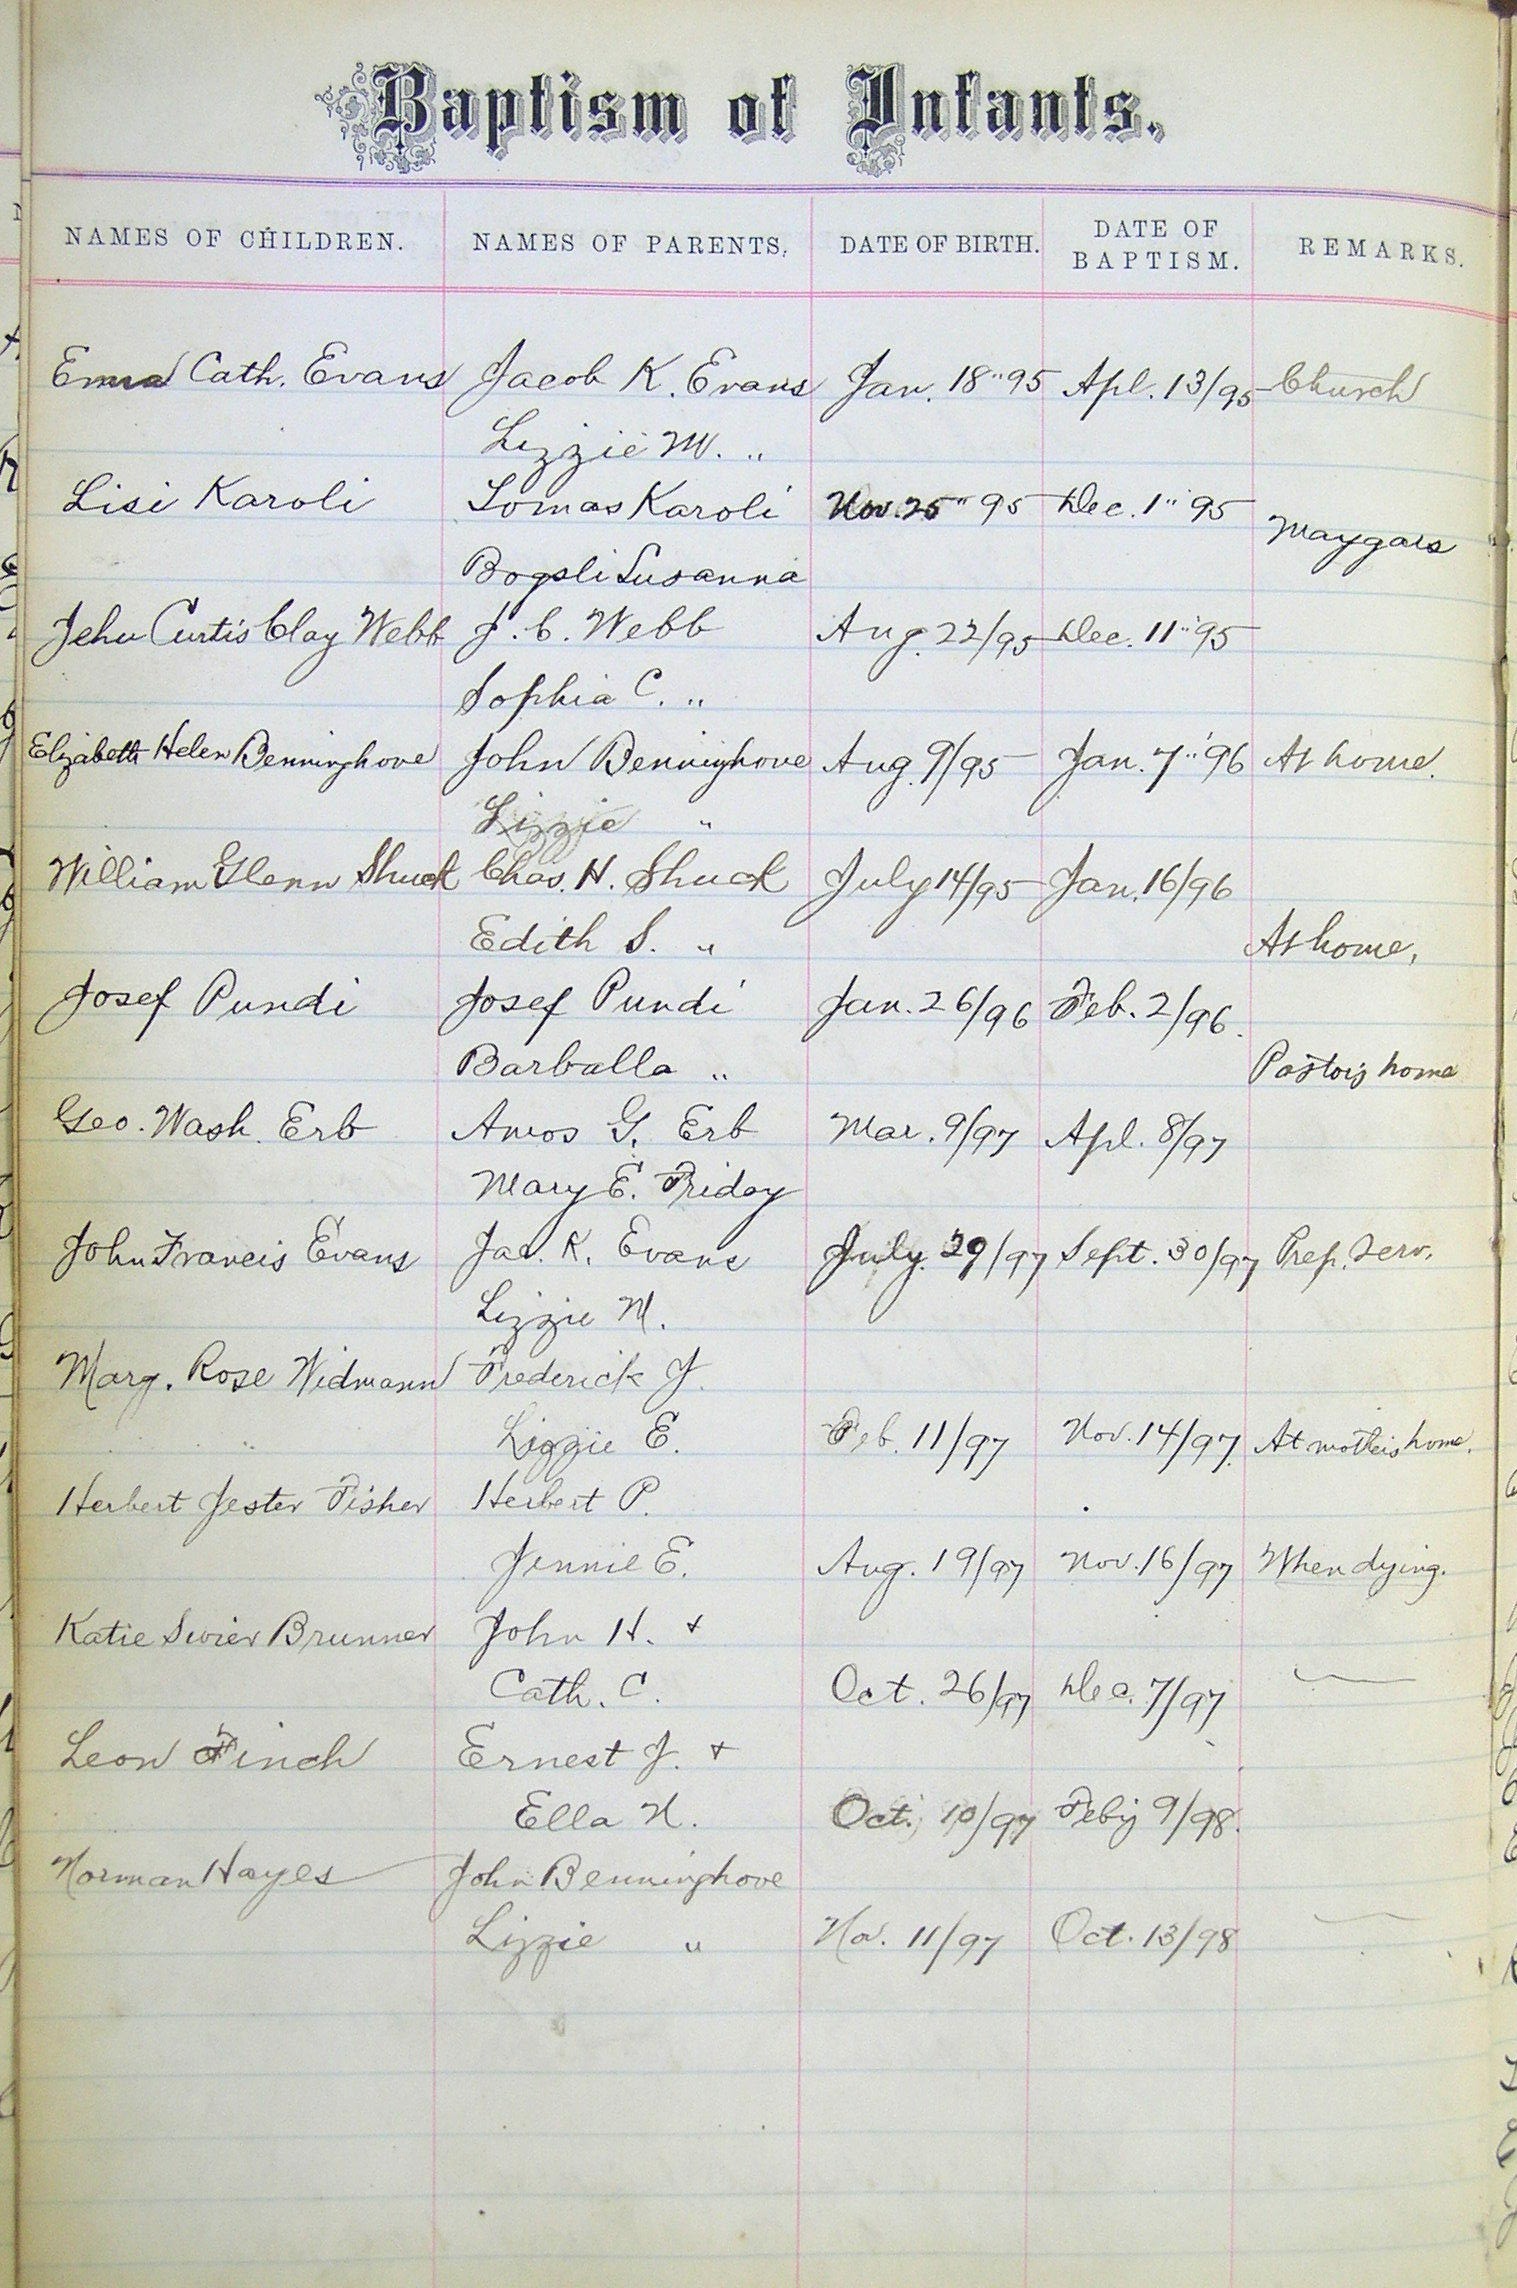 Baptism of Infants.
NAMES OF CHILDREN. NAMES OF PARENTS. DATE OF BIRTH. DATE OF BAPTISM. REMARKS.
Emma Cath. Evans Jacob K. Evans Jan. 18" 95 Apl. 13/95 Church
Lizzie M. "
Lisi Karoli Tomas Karoli Nov. 25" 95 Dec. 1" 95
Maygars
Bogsli Susanna
Jehu Curtis Clay Webb J. C. Webb Aug. 22/95 Dec. 11" 95
Sophia C. "
Elizabeth Helen Benninghove John Benninghove Aug. 9/95 Jan. 7" '96 At home.
Lizzie "
William Glenn Shuck Chas. H. Shuck July 14/95 Jan. 16/96
Edith S. " At home.
Josef Pundi Josef Pundi Jan. 26/96 Feb. 2/96.
Barballa " Pastor's home
Geo. Wash. Erb Amos G. Erb Mar. 9/97 Apl. 8/97
Mary E. Friday
John Francis Evans Jac. K. Evans July 29/97 Sept. 30/97 Prep. Serv.
Lizzie M.
Marg. Rose Widmann Frederick J.
Lizzie E. Feb. 11/97 Nov. 14/97. At mother's home.
Herbert Jester Fisher Herbert P.
Jennie E. Aug. 19/97 Nov. 16/97 When dying.
Katie Swier Brunner John H. +
Cath. C. Oct. 26/97 Dec. 7/97
Leon Finch Ernest J. +
Ella N. Oct. 10/97 Feby 9/98.
Norman Hayes John Benninghove
Lizzie " Nov. 11/97 Oct. 13/98